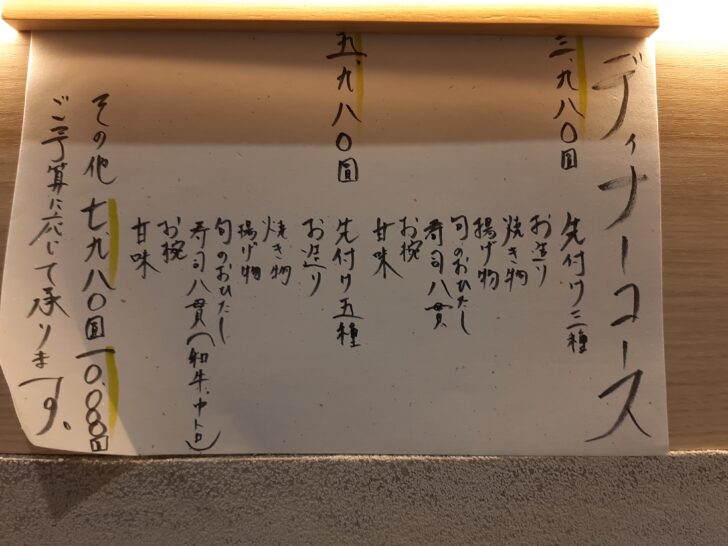 ディナーコース
三、九八〇円
先付け三種
お造り
焼き物
揚げ物
旬のおひたし
寿司八貫
お椀
甘味
五、九八〇円
先付け五種
お造り
焼き物
揚げ物
旬のおひたし
寿司八貫(和牛、中トロ)
お椀
甘味
その他 七、九八〇円 一〇、〇〇〇円
ご予算に応じて承ります。